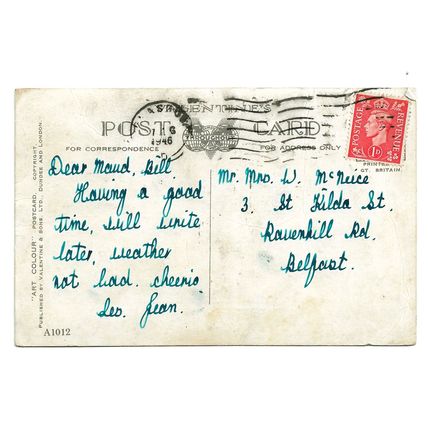 VALENTINE'S
POST CARD
FOR CORRESPONDENCE
FOR ADDRESS ONLY
1946
POSTAGE REVENUE
1D
PRINTED
GT. BRITAIN.
Dear Maud, Bill
Having a good
time, will write
later, weather
not bad. cheerio
Jean.
Mr. Mrs. W. McNeice
3, St Kilda St.
Ravenhill Rd.
Belfast.
"ART COLOUR" POSTCARD. COPYRIGHT
PUBLISHED BY VALENTINE & SONS LTD. DUNDEE AND LONDON.
A1012